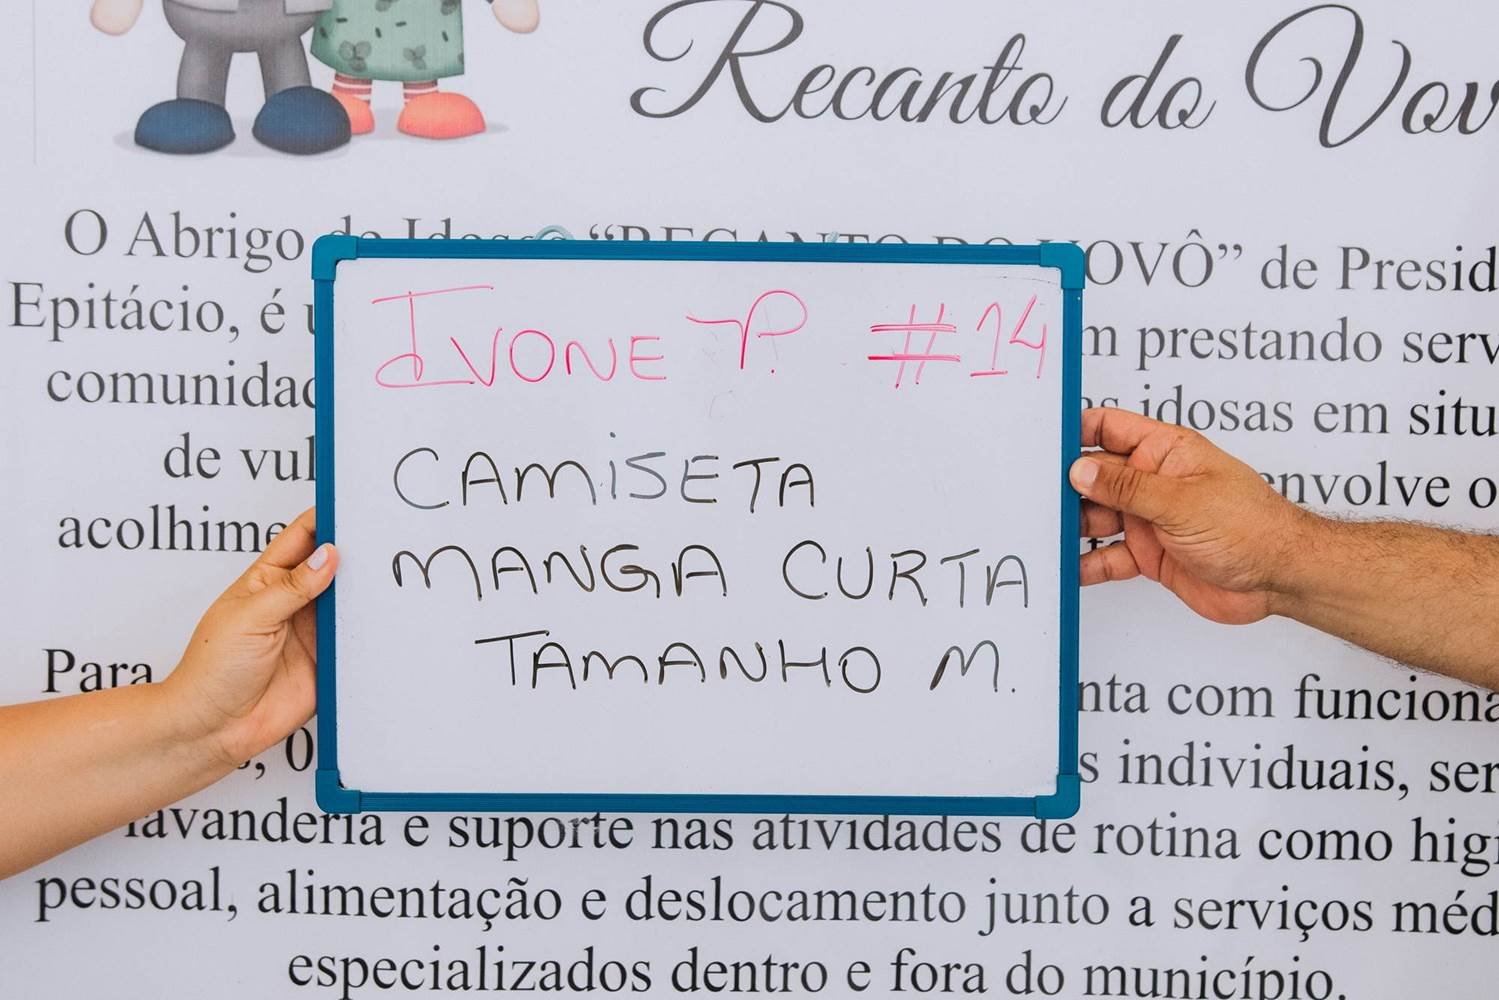 Recanto do Vov
O Abrigo de Idosos “RECANTO DO VOVÔ” de Presid
Epitácio, é
m prestando serv
comunidad
as idosas em situ
de vul
envolve o
acolhime
IVONE P. #14
CAMISETA
MANGA CURTA
TAMANHO M.
Para
nta com funciona
, 0
s individuais, ser
lavanderia e suporte nas atividades de rotina como higi
pessoal, alimentação e deslocamento junto a serviços méd
especializados dentro e fora do município.